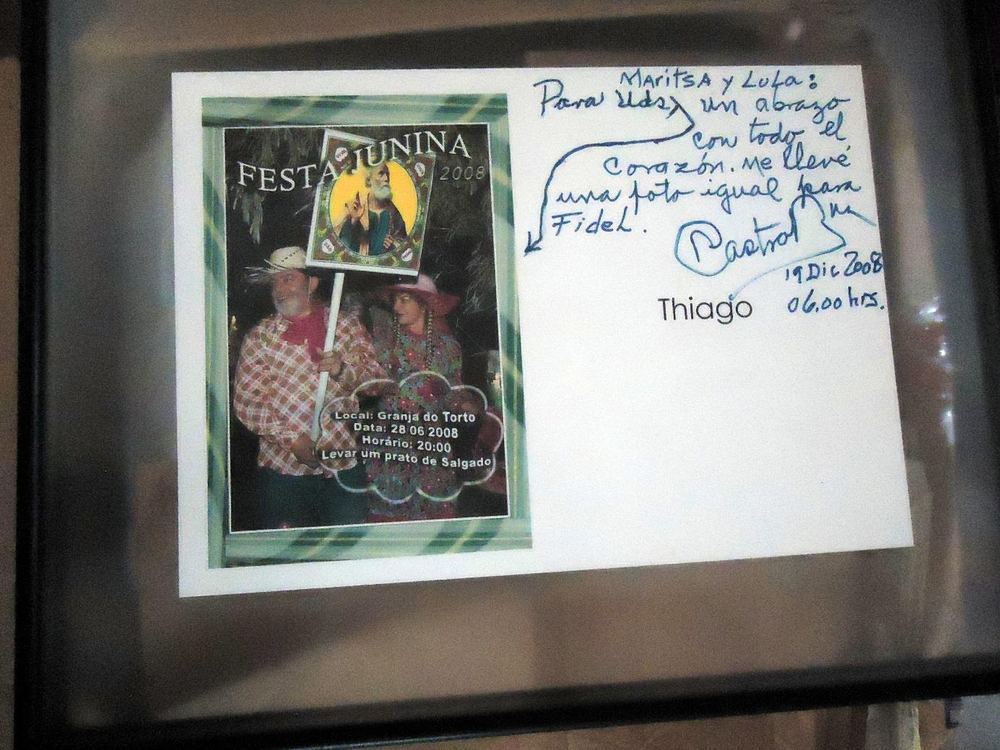 FESTA JUNINA
2008
Local: Granja do Torto
Data: 28 06 2008
Horário: 20:00
Levar um prato de Salgado
Maritsa y Lula:
Para Uds, un abrazo
con todo el
corazón. Me llevé
una foto igual para
Fidel.
Castro
19 Dic 2008
06,00 hrs.
Thiago